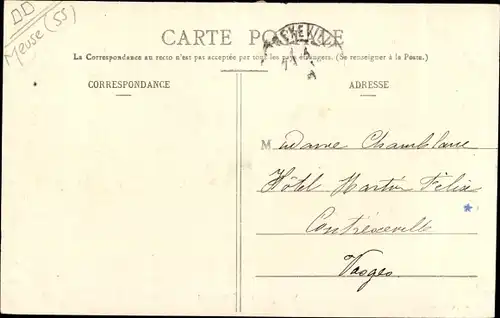 Meuse (55)
CARTE POSTALE
La Correspondance au recto n'est pas acceptée par tous les pays étrangers. (Se renseigner à la Poste.)
CORRESPONDANCE
ADRESSE
Madame Chamblanc
Hôtel Martin Félix
Contréxeville
Vosges